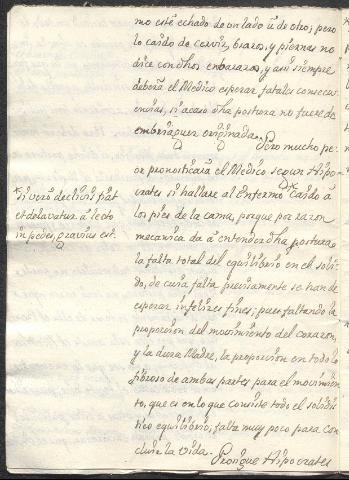 mo esté echado de un lado ũ de otro; pero
lo caido de cerviz, brazos, y piernas no
dice con dhos enbarazos, y asi siempre
deberá el Medico esperar fatales consecu
encias, si acaso dha postura no fuere de
embriaguez originada. Pero mucho pe
or pronosticará el Medico segun Hipo
crates si hallare al Enfermo * Caido à
los pies de la cama, porque por razon
mecanica da á entender dha postura
la falta total del equilibrio en el soli
do, de cuia falta precisamente se han de
esperar infelices fines; pues faltando la
proporcion del movimiento del corazon,
y la dura Madre, la proporcion en todo lo
fibroso de ambas partes para el movimien
to, que es en lo que consiste todo el solidi
tico equilibrio, falta muy poco para con
cluir la vida. Prosigue Hipocrates
* si verò declivis fiat
et delavatur à lecto
in pedes, gravius est